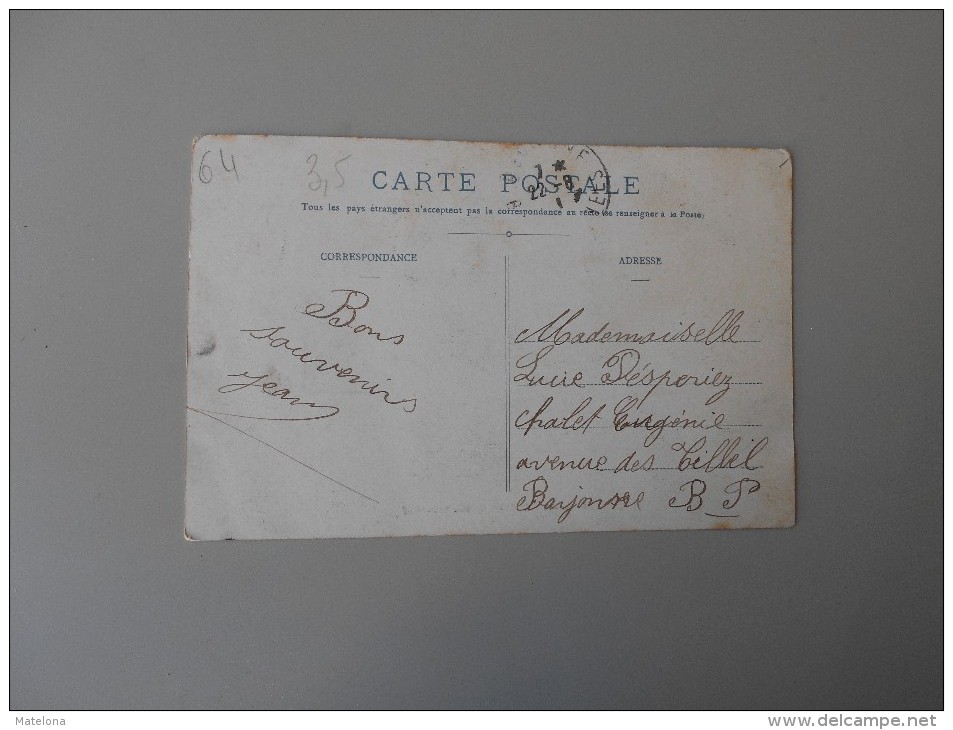 64
3,5
CARTE POSTALE
Tous les pays étrangers n'acceptent pas la correspondance au recto (se renseigner à la Poste)
22 - 8
CORRESPONDANCE
ADRESSE
Bons
souvenirs
Jean
Mademoiselle
Lucie Désperiez
chalet Eugénie
avenue des Tillel
Bayonne B P
Matelona
www.delcampe.net